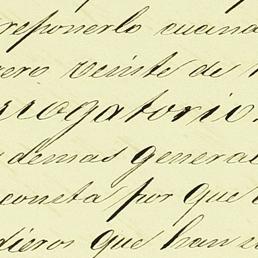 reponerlo cuando
rero veinte de
rrogatorio
demas general
coneta por que
dieros que han